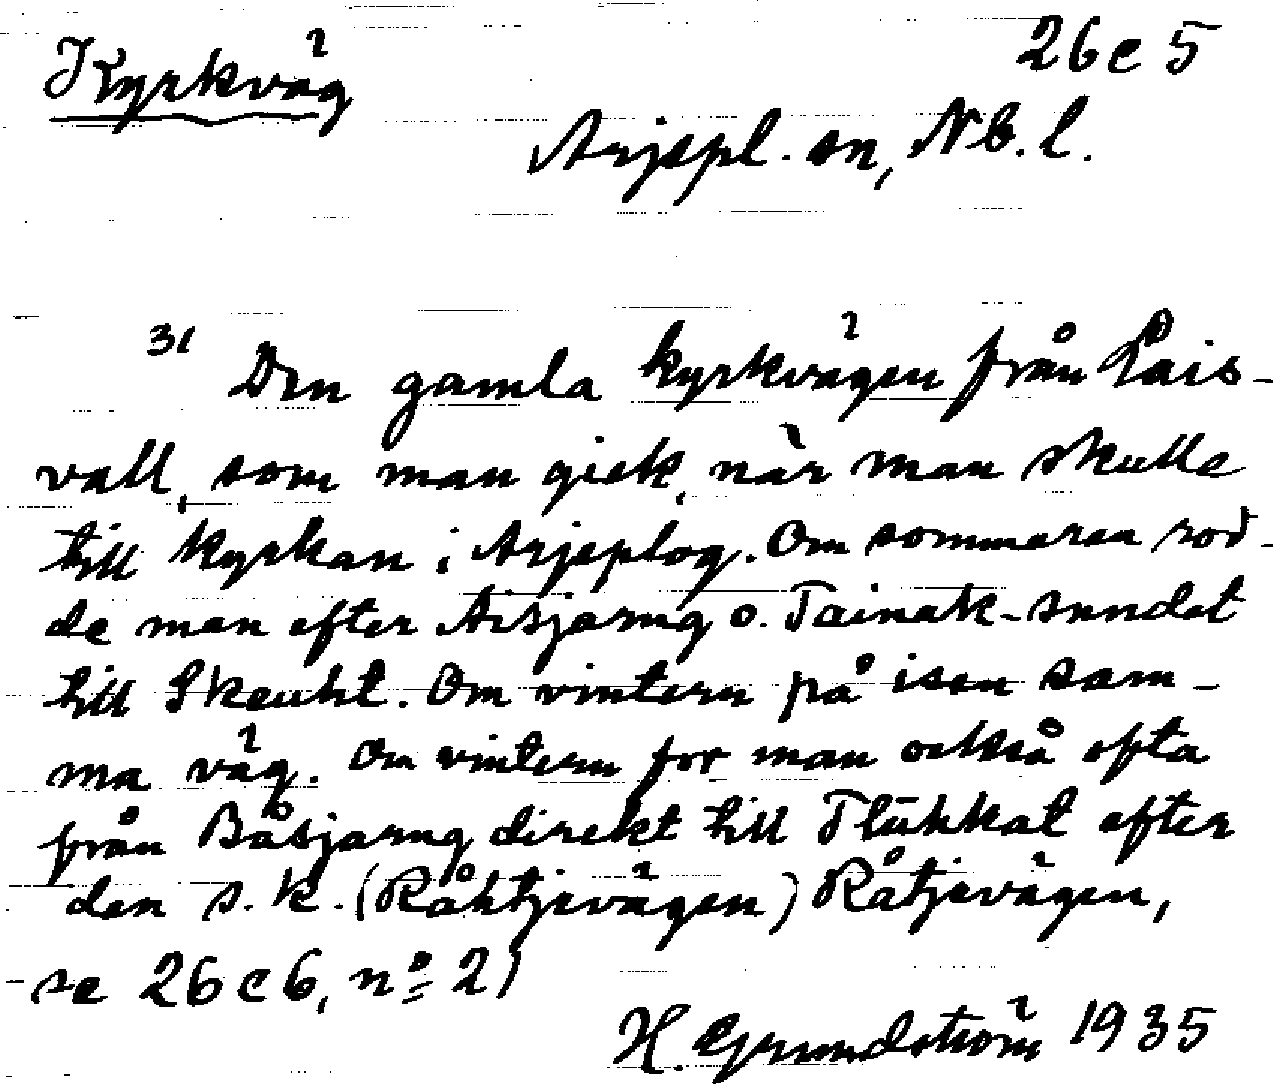 Kyrkväg
26 c 5
Arjepl. sn, Nb. l.
31 Den gamla kyrkvägen från Lais-
vall, som man gick, när man skulle
till kyrkan i Arjeplog. Om sommaren rod-
de man efter Aisjarug o. Tainak-sundet
till Skeuht. Om vintern på isen sam-
ma väg. Om vintern for man också ofta
från Båsjarug direkt till Tluhkat efter
den s.k. (Råhtjevägen) Råtjevägen,
se 26 c 6, nº 2)
H. Grundström 1935